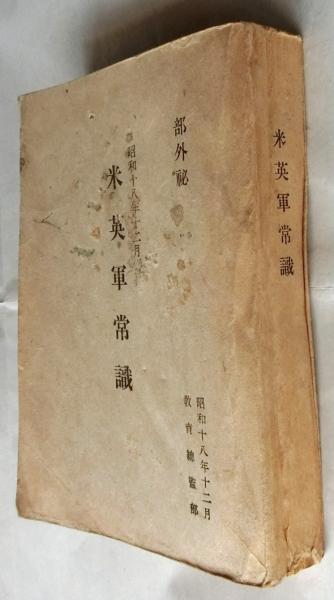 部外祕
昭和十八年十二月
米英軍常識
昭和十八年十二月
教育總監部
米英軍常識